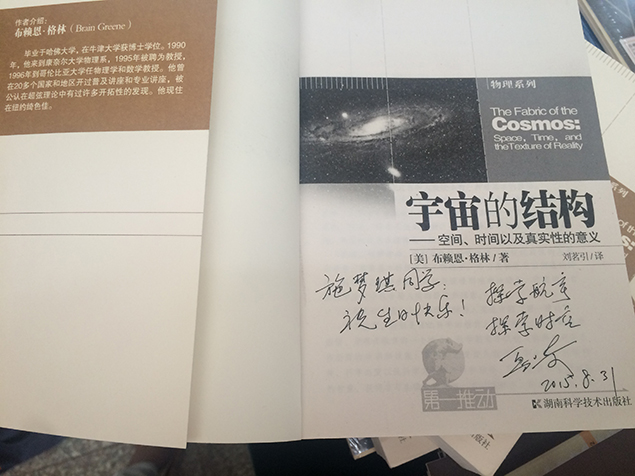 作者介绍：
布赖恩·格林（Brain Greene）
毕业于哈佛大学，在牛津大学获博士学位。1990
年，他来到康奈尔大学物理系，1995年被聘为教授，
1996年到哥伦比亚大学任物理学和数学教授。他曾
在20多个国家和地区开过普及讲座和专业讲座，被
公认在超弦理论中有过许多开拓性的发现。他现住
在纽约绮色佳。
物理系列
The Fabric of the
Cosmos:
Space, Time, and
the Texture of Reality
宇宙的结构
——空间、时间以及真实性的意义
[美] 布赖恩·格林 / 著
刘茗引 / 译
施梦琪同学：
祝生日快乐！
探索航宇
探索时空
2015.8.31
第一推动
湖南科学技术出版社